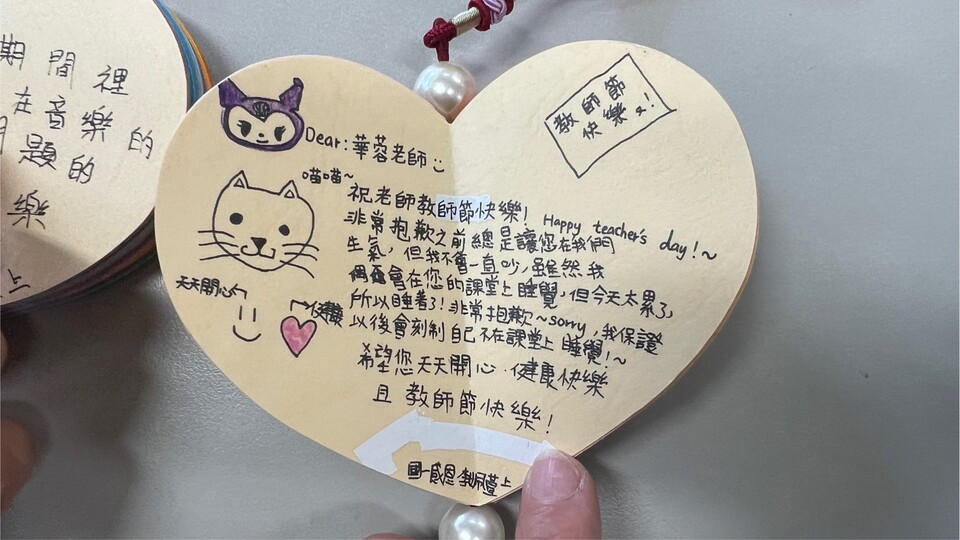 期間裡
在音樂的
題的
樂
教師節
快樂ㄡ!
Dear:華蓉老師
喵喵~
祝老師教師節快樂! Happy teacher's day!~
非常抱歉之前總是讓您在我們
生氣,但我不會一直吵,雖然我
偶爾會在您的課堂上睡覺,但今天太累了,
所以睡着了!非常抱歉~sorry,我保證
以後會刻制自己不在課堂上睡覺!~
希望您天天開心.健康快樂
且教師節快樂!
天天開心
健康
國一感恩 上